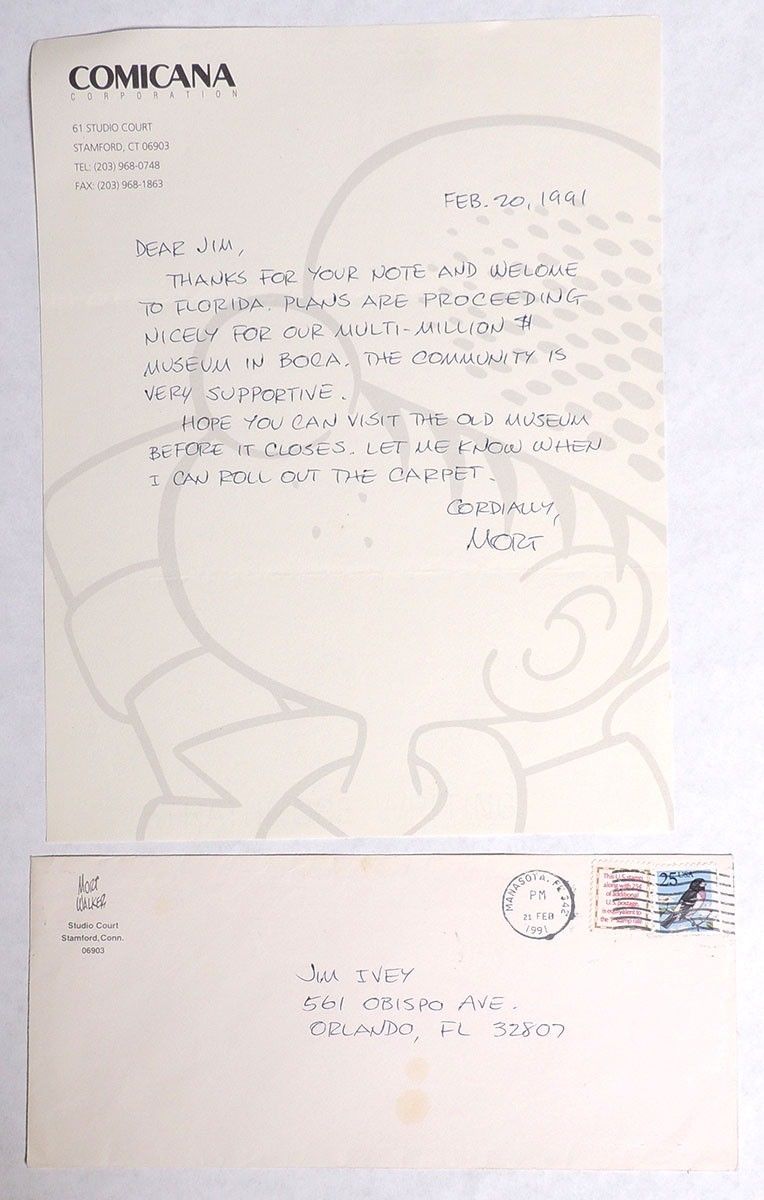 COMICANA
CORPORATION
61 STUDIO COURT
STAMFORD, CT 06903
TEL: (203) 968-0748
FAX: (203) 968-1863
FEB. 20, 1991
DEAR JIM,
THANKS FOR YOUR NOTE AND WELOME
TO FLORIDA. PLANS ARE PROCEEDING
NICELY FOR OUR MULTI-MILLION $
MUSEUM IN BOCA. THE COMMUNITY IS
VERY SUPPORTIVE.
HOPE YOU CAN VISIT THE OLD MUSEUM
BEFORE IT CLOSES. LET ME KNOW WHEN
I CAN ROLL OUT THE CARPET.
CORDIALLY,
MORT
MORT
WALKER
Studio Court
Stamford, Conn.
06903
MANASOTA, FL 342
PM
21 FEB
1991
This U.S. stamp
along with 25¢
of additional
U.S. postage
is equivalent to
the 'F' stamp rate
25 USA
JIM IVEY
561 OBISPO AVE.
ORLANDO, FL 32807